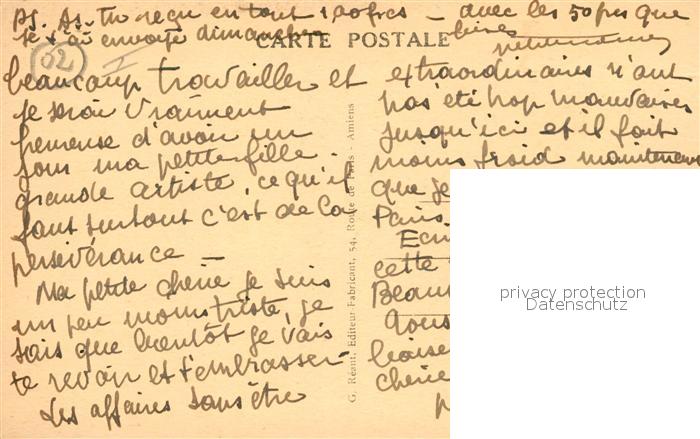 PS. As-tu reçu en tout 100 frcs — avec les 50 frs que
je t'ai envoyé dimanche
CARTE POSTALE
62
I
beaucoup travailler et
je serai vraiment
heureuse d'avoir un
jour ma petite fille
grande artiste, ce qu'il
faut surtout c'est de la
persévérance —
Ma petite chérie je suis
un peu moins triste, je
sais que bientôt je vais
te revoir et t'embrasser —
Les affaires sans être
G. Réant, Editeur-Fabricant, 54, Route de Paris - Amiens
extraordinaires n'ont
pas été trop mauvaises
jusqu'ici et il fait
moins froid maintenant
que je
Paris.
Ecri
cette
Beau
chérie
privacy protection
Datenschutz